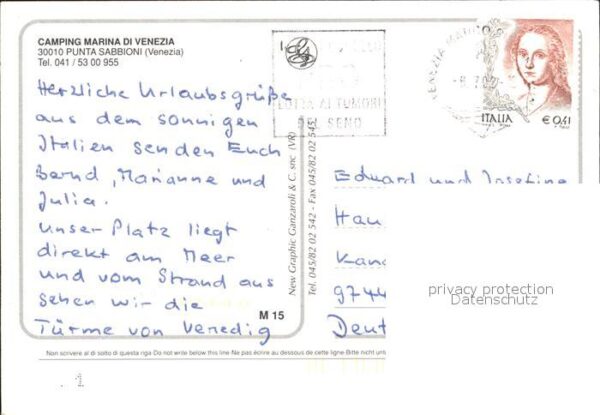 CAMPING MARINA DI VENEZIA
30010 PUNTA SABBIONI (Venezia)
Tel. 041 / 53 00 955
Herzliche Urlaubsgrüße
aus dem sonnigen
Italien senden Euch
Bernd, Marianne und
Julia.
Unser Platz liegt
direkt am Meer
und vom Strand aus
sehen wir die
Türme von Venedig
M 15
New Graphic Ganzaroli & C. snc. (VR)
Tel. 045/82 02 542 - Fax 045/82 02 545
LOTTA AI TUMORI
SENO
VENEZIA
ITALIA
€ 0,41
Eduard und Josefine
Hau
Kand
9744
Deut
privacy protection
Datenschutz
Non scrivere al di sotto di questa riga Do not write below this line Ne pas écrire au dessous de cette ligne Bitte nicht unt
1